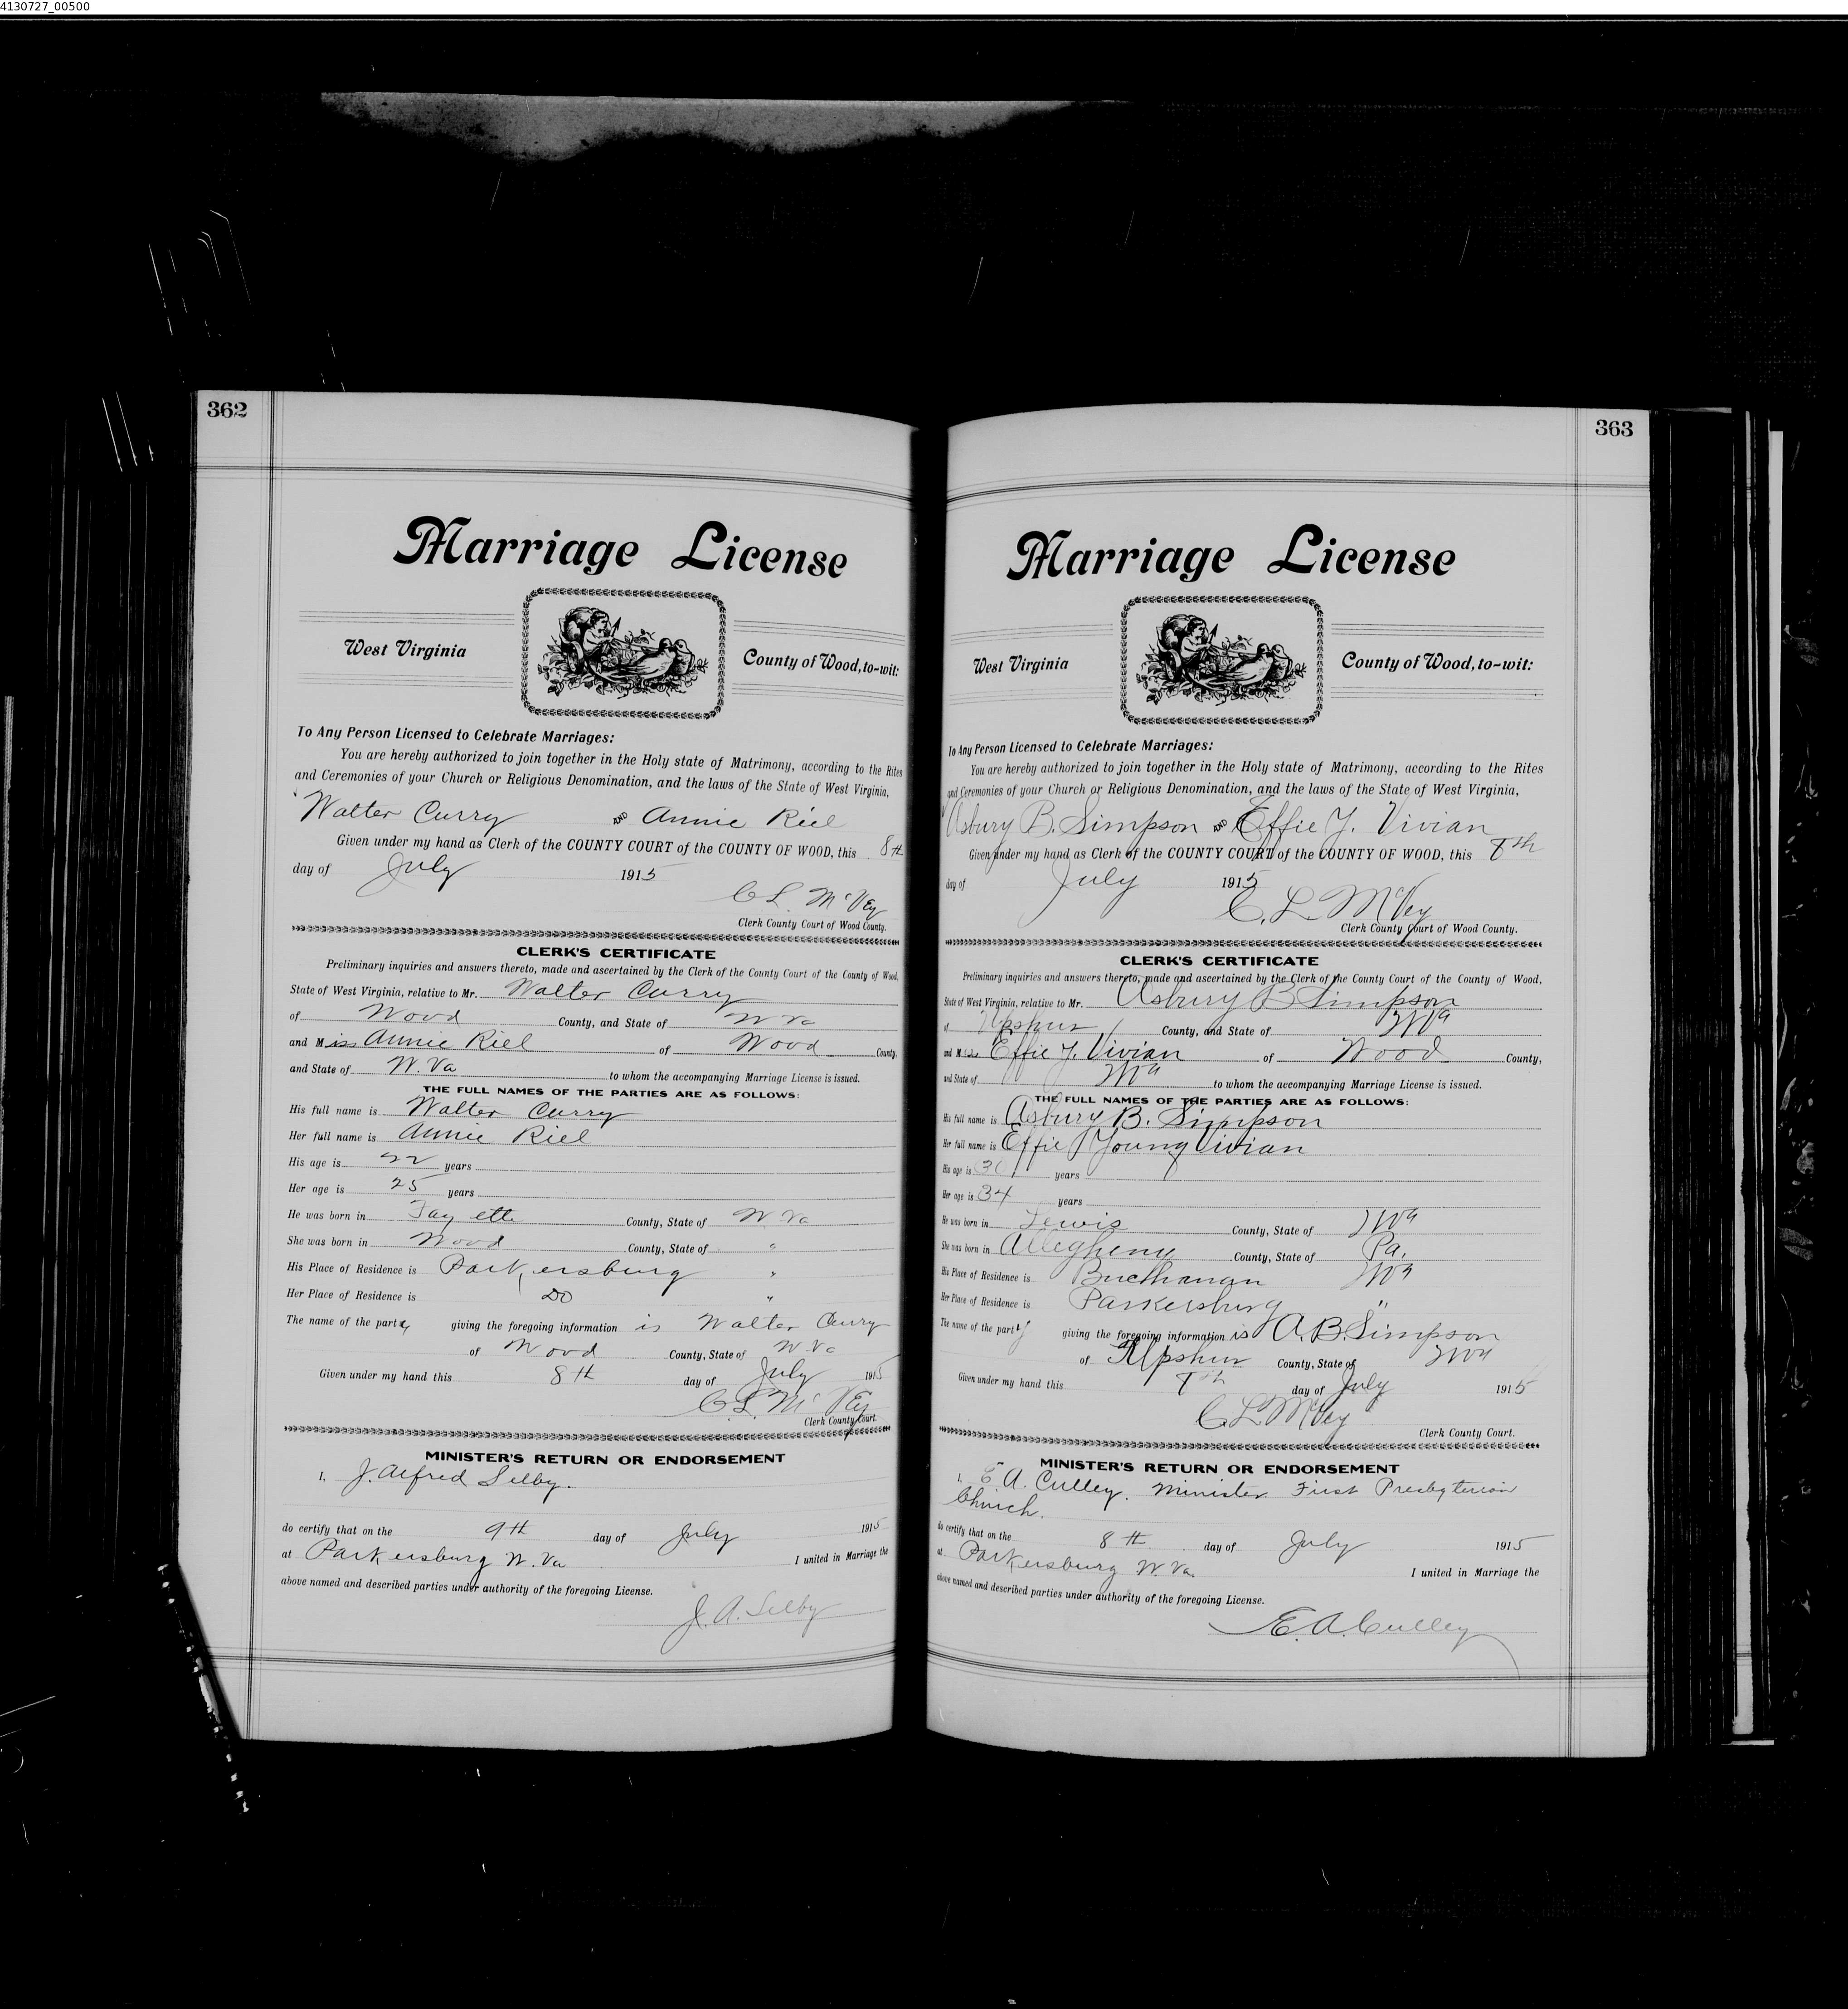 4130727_00500
362
Marriage License
West Virginia
County of Wood, to-wit:
To Any Person Licensed to Celebrate Marriages:
You are hereby authorized to join together in the Holy state of Matrimony, according to the Rites
and Ceremonies of your Church or Religious Denomination, and the laws of the State of West Virginia,
Walter Curry AND Annie Riel
Given under my hand as Clerk of the COUNTY COURT of the COUNTY OF WOOD, this 8th
day of July 1915
C L. McVey
Clerk County Court of Wood County.
CLERK'S CERTIFICATE
Preliminary inquiries and answers thereto, made and ascertained by the Clerk of the County Court of the County of Wood,
State of West Virginia, relative to Mr. Walter Curry
of Wood County, and State of W Va
and Miss Annie Riel of Wood County,
and State of W. Va to whom the accompanying Marriage License is issued.
THE FULL NAMES OF THE PARTIES ARE AS FOLLOWS:
His full name is Walter Curry
Her full name is Annie Riel
His age is 22 years
Her age is 25 years
He was born in Fayette County, State of W. Va
She was born in Wood County, State of "
His Place of Residence is Parkersburg "
Her Place of Residence is Do "
The name of the party giving the foregoing information is Walter Curry
of Wood County, State of W. Va
Given under my hand this 8th day of July 1915
C. L. McVey
Clerk County Court.
MINISTER'S RETURN OR ENDORSEMENT
I, J. Alfred Selby.
do certify that on the 9th day of July 1915
at Parkersburg W. Va I united in Marriage the
above named and described parties under authority of the foregoing License.
J. A. Selby
363
Marriage License
West Virginia
County of Wood, to-wit:
To Any Person Licensed to Celebrate Marriages:
You are hereby authorized to join together in the Holy state of Matrimony, according to the Rites
and Ceremonies of your Church or Religious Denomination, and the laws of the State of West Virginia,
Asbury B. Simpson AND Effie Y. Vivian
Given under my hand as Clerk of the COUNTY COURT of the COUNTY OF WOOD, this 8th
day of July 1915
C. L McVey
Clerk County Court of Wood County.
CLERK'S CERTIFICATE
Preliminary inquiries and answers thereto, made and ascertained by the Clerk of the County Court of the County of Wood,
State of West Virginia, relative to Mr. Asbury B Simpson
of Upshur County, and State of WVa
and M Effie Y. Vivian of Wood County,
and State of WVa to whom the accompanying Marriage License is issued.
THE FULL NAMES OF THE PARTIES ARE AS FOLLOWS:
His full name is Asbury B. Simpson
Her full name is Effie Young Vivian
His age is years
Her age is 34 years
He was born in Lewis County, State of WVa
She was born in Allegheny County, State of Pa.
His Place of Residence is Buchhanan WVa
Her Place of Residence is Parkersburg "
The name of the party giving the foregoing information is A. B. Simpson
of Upshur County, State of WVa
Given under my hand this 8th day of July 1915
C. L McVey
Clerk County Court.
MINISTER'S RETURN OR ENDORSEMENT
I, E A. Culley. Minister First Presbyterian
Church.
do certify that on the 8th day of July 1915
at Parkersburg W Va. I united in Marriage the
above named and described parties under authority of the foregoing License.
E. A. Culley